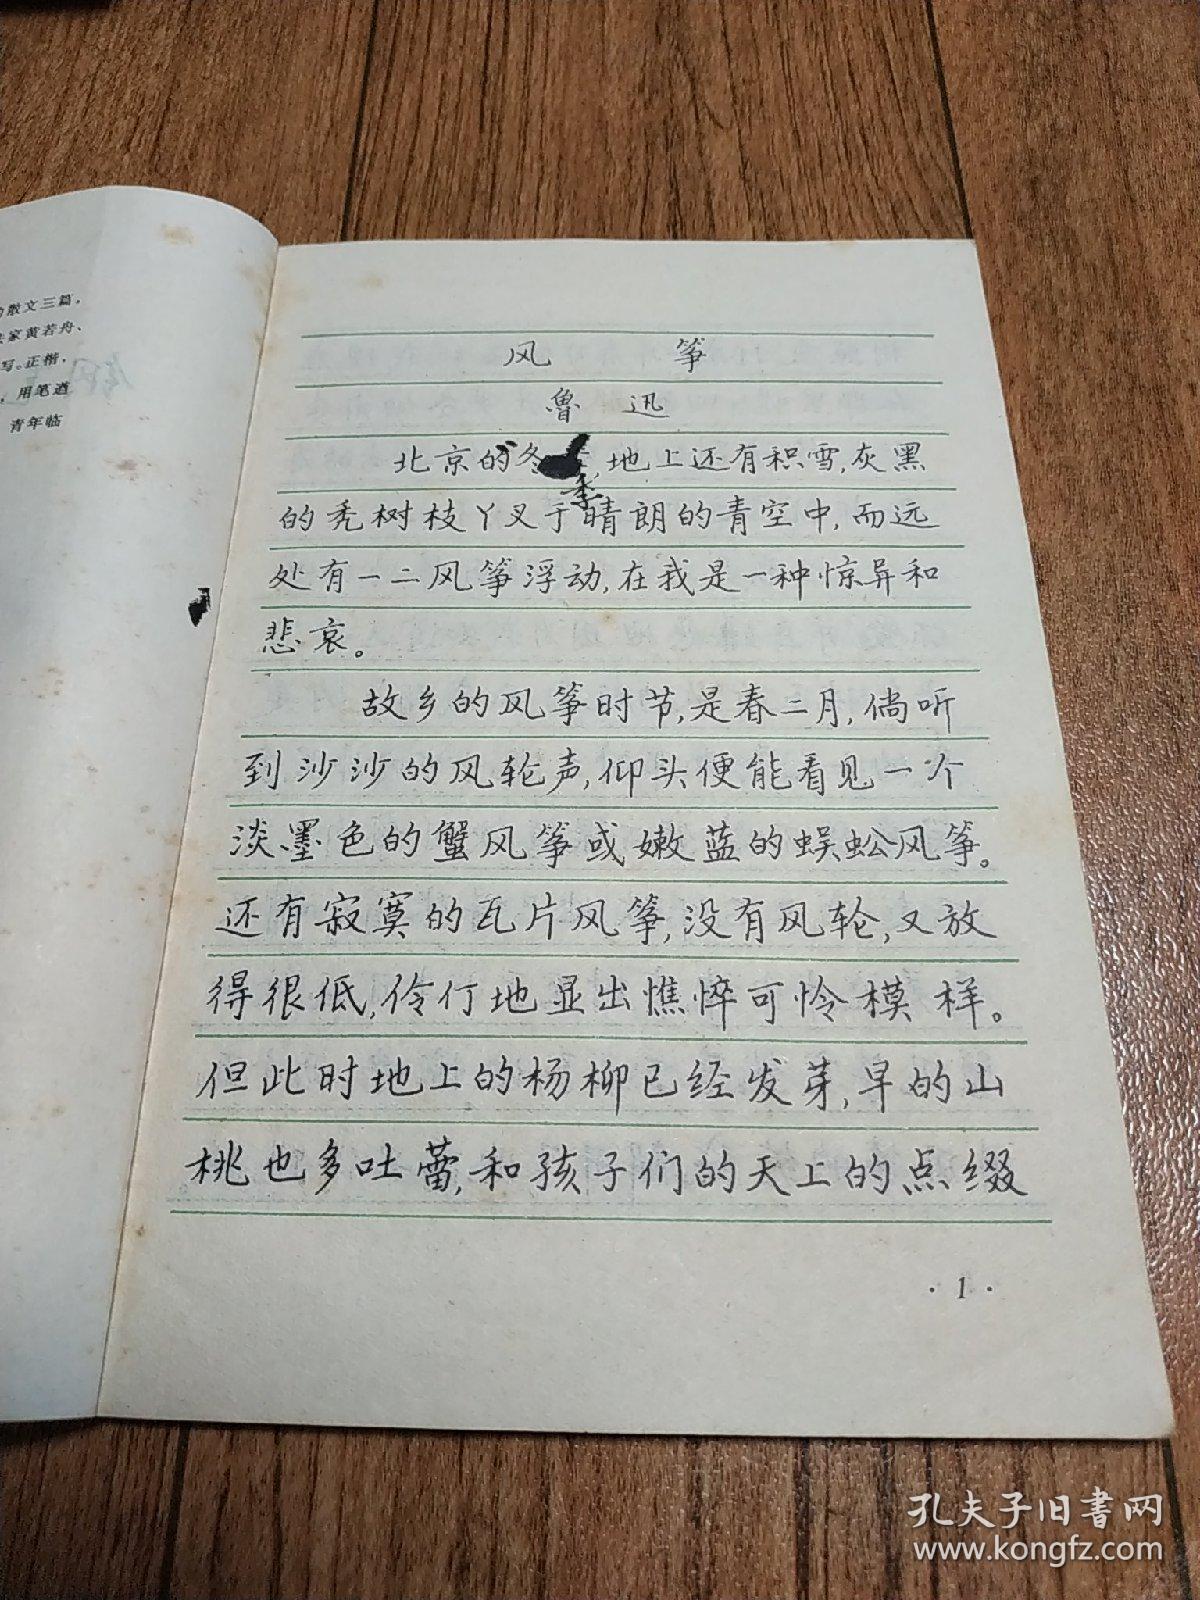 散文三篇，
家黄若舟、
写。正楷，
，用笔遒
青年临
风 筝
鲁 迅
北京的冬季，地上还有积雪，灰黑
的秃树枝丫叉于晴朗的青空中，而远
处有一二风筝浮动，在我是一种惊异和
悲哀。
故乡的风筝时节，是春二月，倘听
到沙沙的风轮声，仰头便能看见一个
淡墨色的蟹风筝或嫩蓝的蜈蚣风筝。
还有寂寞的瓦片风筝，没有风轮，又放
得很低，伶仃地显出憔悴可怜模样。
但此时地上的杨柳已经发芽，早的山
桃也多吐蕾，和孩子们的天上的点缀
·1·
孔夫子旧书网
www.kongfz.com